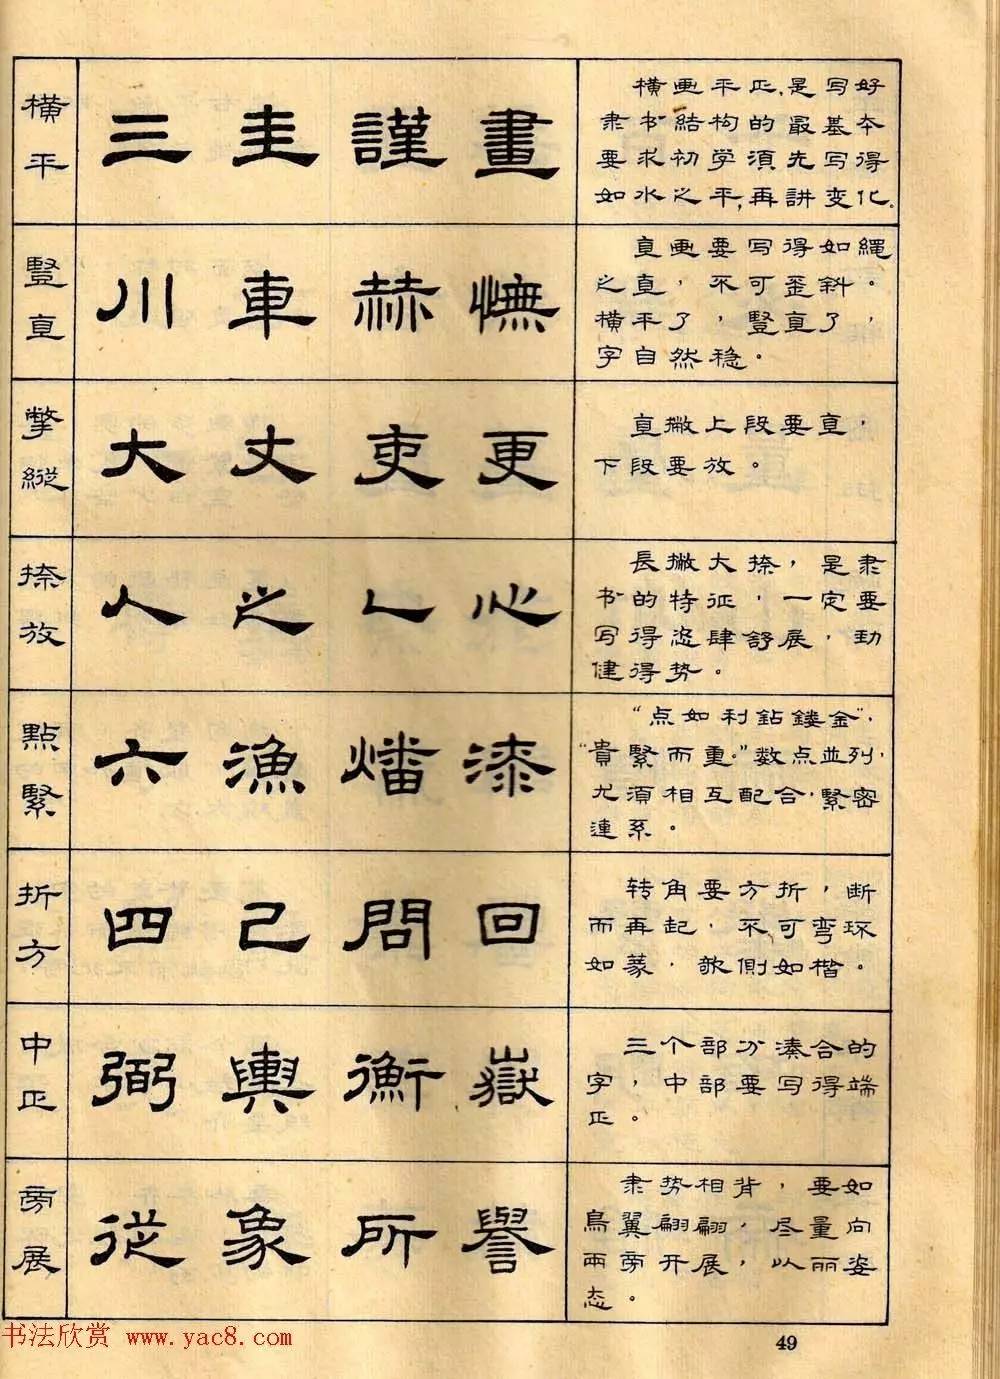 横平
三 圭 謹 畫
横画平正,是写好
隶书结构的最基本
要求初学须先写得
如水之平,再讲变化。
豎直
川 車 赫 憮
直画要写得如繩
之直,不可歪斜。
横平了,豎直了,
字自然稳。
撆縱
大 丈 吏 更
直撇上段要直,
下段要放。
捺放
人 之 乀 心
長撇大捺,是隶
书的特征,一定要
写得恣肆舒展,劲
健得势。
點緊
六 漁 燔 漆
“点如利鉆鏤金”,
“貴緊而重。”数点並列,
尤須相互配合,緊密
連系。
折方
四 己 問 回
转角要方折,断
而再起,不可弯环
如篆,欹側如楷。
中正
弼 輿 衡 嶽
三个部分湊合的
字,中部要写得端
正。
旁展
從 象 所 譽
隶势相背,要如
鳥翼翩翩,尽量向
兩旁开展,以丽姿
态。
书法欣赏 www.yac8.com
49